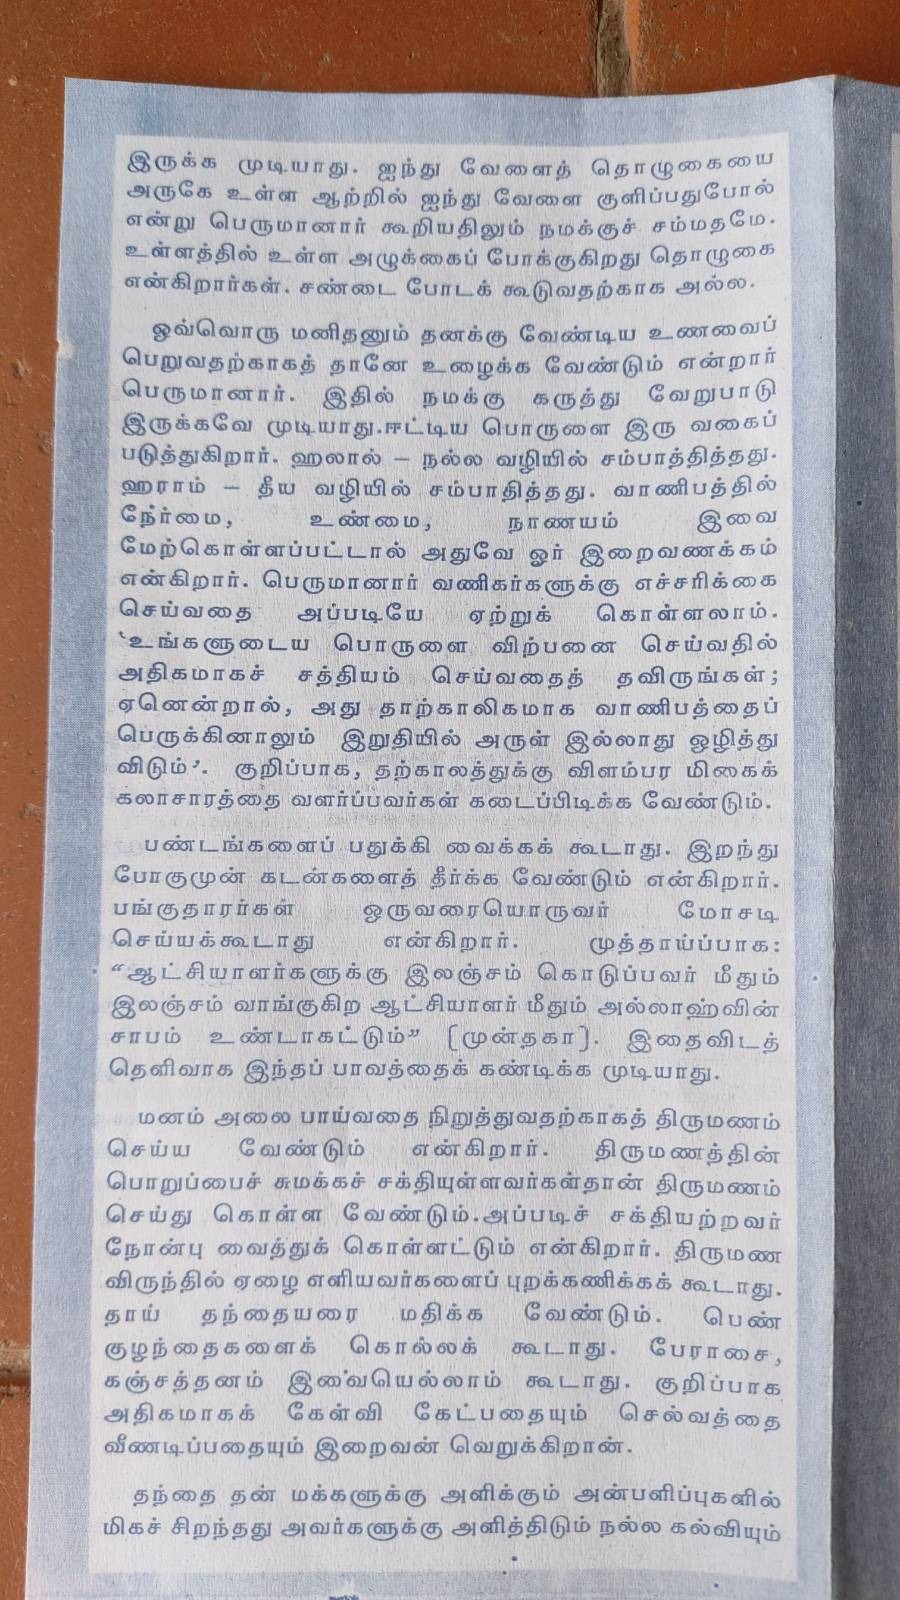 இருக்க முடியாது. ஐந்து வேளைத் தொழுகையை
அருகே உள்ள ஆற்றில் ஐந்து வேளை குளிப்பதுபோல்
என்று பெருமானார் கூறியதிலும் நமக்குச் சம்மதமே.
உள்ளத்தில் உள்ள அழுக்கைப் போக்குகிறது தொழுகை
என்கிறார்கள். சண்டை போடக் கூடுவதற்காக அல்ல.
ஒவ்வொரு மனிதனும் தனக்கு வேண்டிய உணவைப்
பெறுவதற்காகத் தானே உழைக்க வேண்டும் என்றார்
பெருமானார். இதில் நமக்கு கருத்து வேறுபாடு
இருக்கவே முடியாது.ஈட்டிய பொருளை இரு வகைப்
படுத்துகிறார். ஹலால் – நல்ல வழியில் சம்பாத்தித்தது.
ஹராம் – தீய வழியில் சம்பாதித்தது. வாணிபத்தில்
நேர்மை, உண்மை, நாணயம் இவை
மேற்கொள்ளப்பட்டால் அதுவே ஓர் இறைவணக்கம்
என்கிறார். பெருமானார் வணிகர்களுக்கு எச்சரிக்கை
செய்வதை அப்படியே ஏற்றுக் கொள்ளலாம்.
‘உங்களுடைய பொருளை விற்பனை செய்வதில்
அதிகமாகச் சத்தியம் செய்வதைத் தவிருங்கள்;
ஏனென்றால், அது தாற்காலிகமாக வாணிபத்தைப்
பெருக்கினாலும் இறுதியில் அருள் இல்லாது ஒழித்து
விடும்’. குறிப்பாக, தற்காலத்துக்கு விளம்பர மிகைக்
கலாசாரத்தை வளர்ப்பவர்கள் கடைப்பிடிக்க வேண்டும்.
பண்டங்களைப் பதுக்கி வைக்கக் கூடாது. இறந்து
போகுமுன் கடன்களைத் தீர்க்க வேண்டும் என்கிறார்.
பங்குதாரர்கள் ஒருவரையொருவர் மோசடி
செய்யக்கூடாது என்கிறார். முத்தாய்ப்பாக:
“ஆட்சியாளர்களுக்கு இலஞ்சம் கொடுப்பவர் மீதும்
இலஞ்சம் வாங்குகிற ஆட்சியாளர் மீதும் அல்லாஹ்வின்
சாபம் உண்டாகட்டும்” (முன்தகா). இதைவிடத்
தெளிவாக இந்தப் பாவத்தைக் கண்டிக்க முடியாது.
மனம் அலை பாய்வதை நிறுத்துவதற்காகத் திருமணம்
செய்ய வேண்டும் என்கிறார். திருமணத்தின்
பொறுப்பைச் சுமக்கச் சக்தியுள்ளவர்கள்தான் திருமணம்
செய்து கொள்ள வேண்டும்.அப்படிச் சக்தியற்றவர்
நோன்பு வைத்துக் கொள்ளட்டும் என்கிறார். திருமண
விருந்தில் ஏழை எளியவர்களைப் புறக்கணிக்கக் கூடாது.
தாய் தந்தையரை மதிக்க வேண்டும். பெண்
குழந்தைகளைக் கொல்லக் கூடாது. பேராசை,
கஞ்சத்தனம் இவையெல்லாம் கூடாது. குறிப்பாக
அதிகமாகக் கேள்வி கேட்பதையும் செல்வத்தை
வீணடிப்பதையும் இறைவன் வெறுக்கிறான்.
தந்தை தன் மக்களுக்கு அளிக்கும் அன்பளிப்புகளில்
மிகச் சிறந்தது அவர்களுக்கு அளித்திடும் நல்ல கல்வியும்